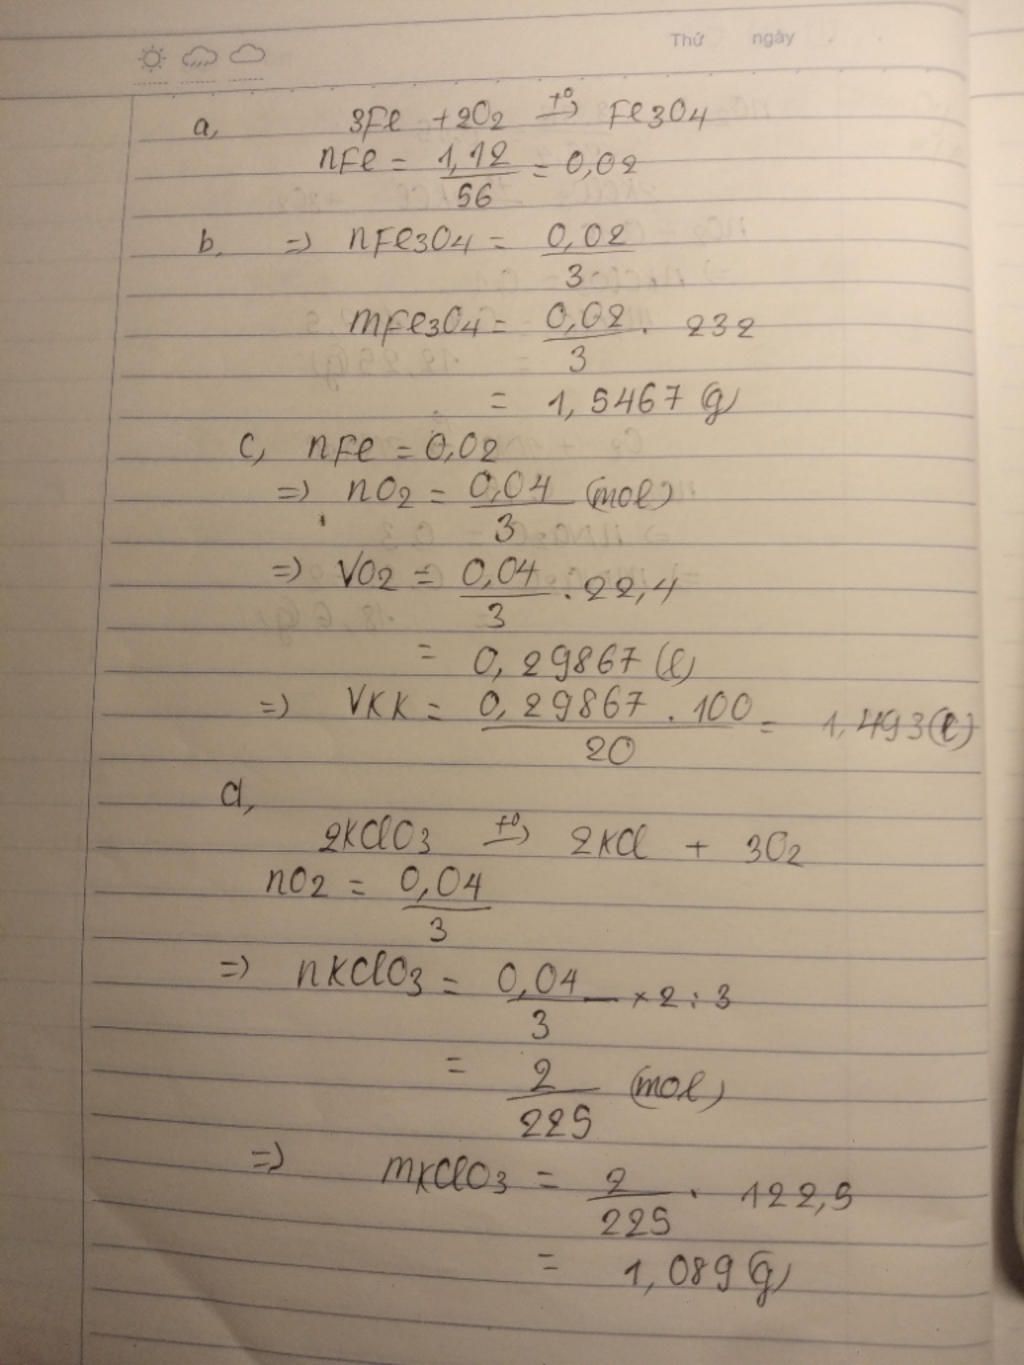 Thứ ngày
a, 3Fe + 2O2 t⁰→ Fe3O4
nFe = 1,12/56 = 0,02
b. => nFe3O4 = 0,02/3
mFe3O4 = 0,02/3 . 232
= 1,5467 (g)
c, nFe = 0,02
=> nO2 = 0,04/3 (mol)
=> VO2 = 0,04/3 . 22,4
= 0,29867 (l)
=> VKK = 0,29867 . 100/20 = 1,493 (l)
d,
2KClO3 t⁰→ 2KCl + 3O2
nO2 = 0,04/3
=> nKClO3 = 0,04/3 × 2 : 3
= 2/225 (mol)
=> mKClO3 = 2/225 . 122,5
= 1,089 (g)